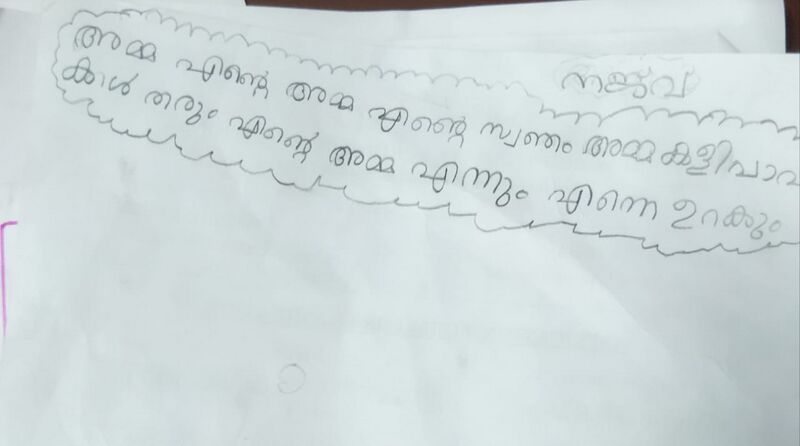 നജ്വ
അമ്മ എന്റെ അമ്മ എന്റെ സ്വന്തം അമ്മ കളിപാവ
കാൾ തരും എന്റെ അമ്മ എന്നും എന്നെ ഉറകും